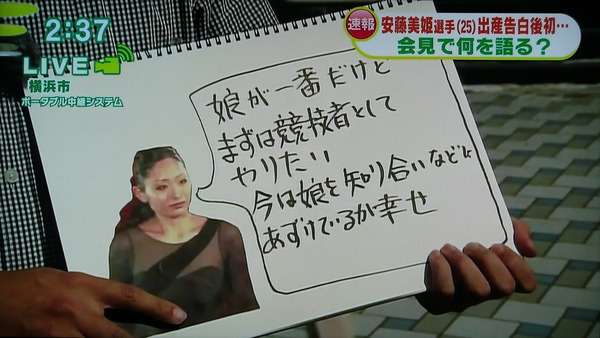 2:37
LIVE
横浜市
ポータブル中継システム
速報
安藤美姫選手(25)出産告白後初…
会見で何を語る?
娘が一番だけど
まずは競技者として
やりたい
今は娘を知り合いなどに
あずけているが幸せ